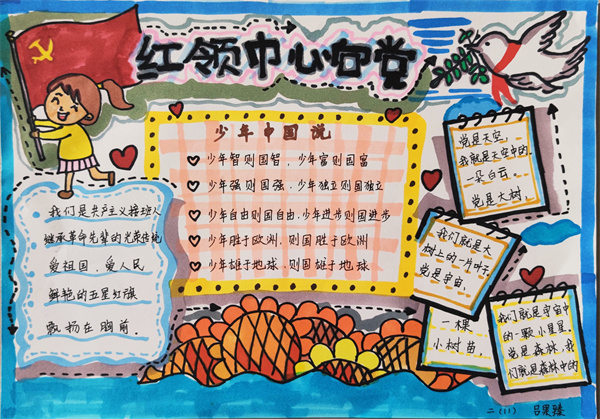 红领巾心向党
少年中国说
少年智则国智,少年富则国富
少年强则国强,少年独立则国独立
少年自由则国自由,少年进步则国进步
少年胜于欧洲,则国胜于欧洲
少年雄于地球,则国雄于地球
我们是共产主义接班人
继承革命先辈的光荣传统
爱祖国、爱人民
鲜艳的五星红旗
飘扬在胸前。
党是天空,
我就是天空中的
一朵白云,
党是大树,
我们就是大
树上的一片叶子,
党是宇宙,
我们就是宇宙中
的一颗小星星,
党是森林,我
们就是森林中的
一棵
小树苗,
二(11) 吕果臻